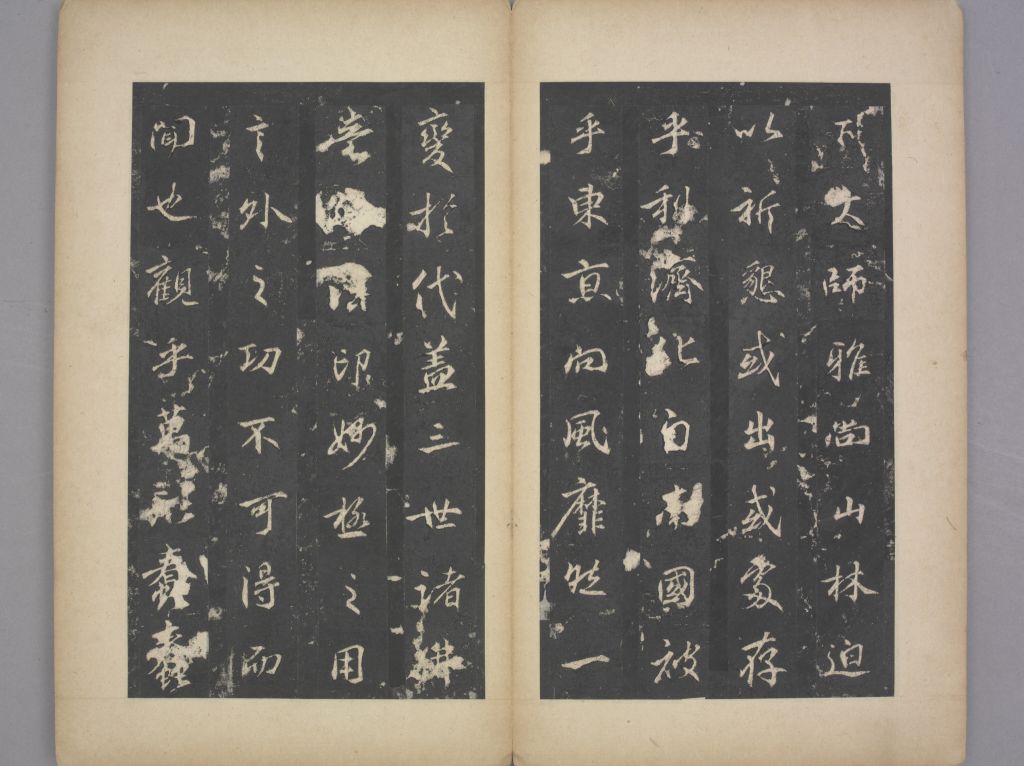 大師雅尚山林迫
以祈懇或出或處存
乎利濟北自南國被
乎東夏向風靡然一
變於代蓋三世諸佛
印妙極之用
言外之功不可得而
聞也觀乎萬 蠢蠢